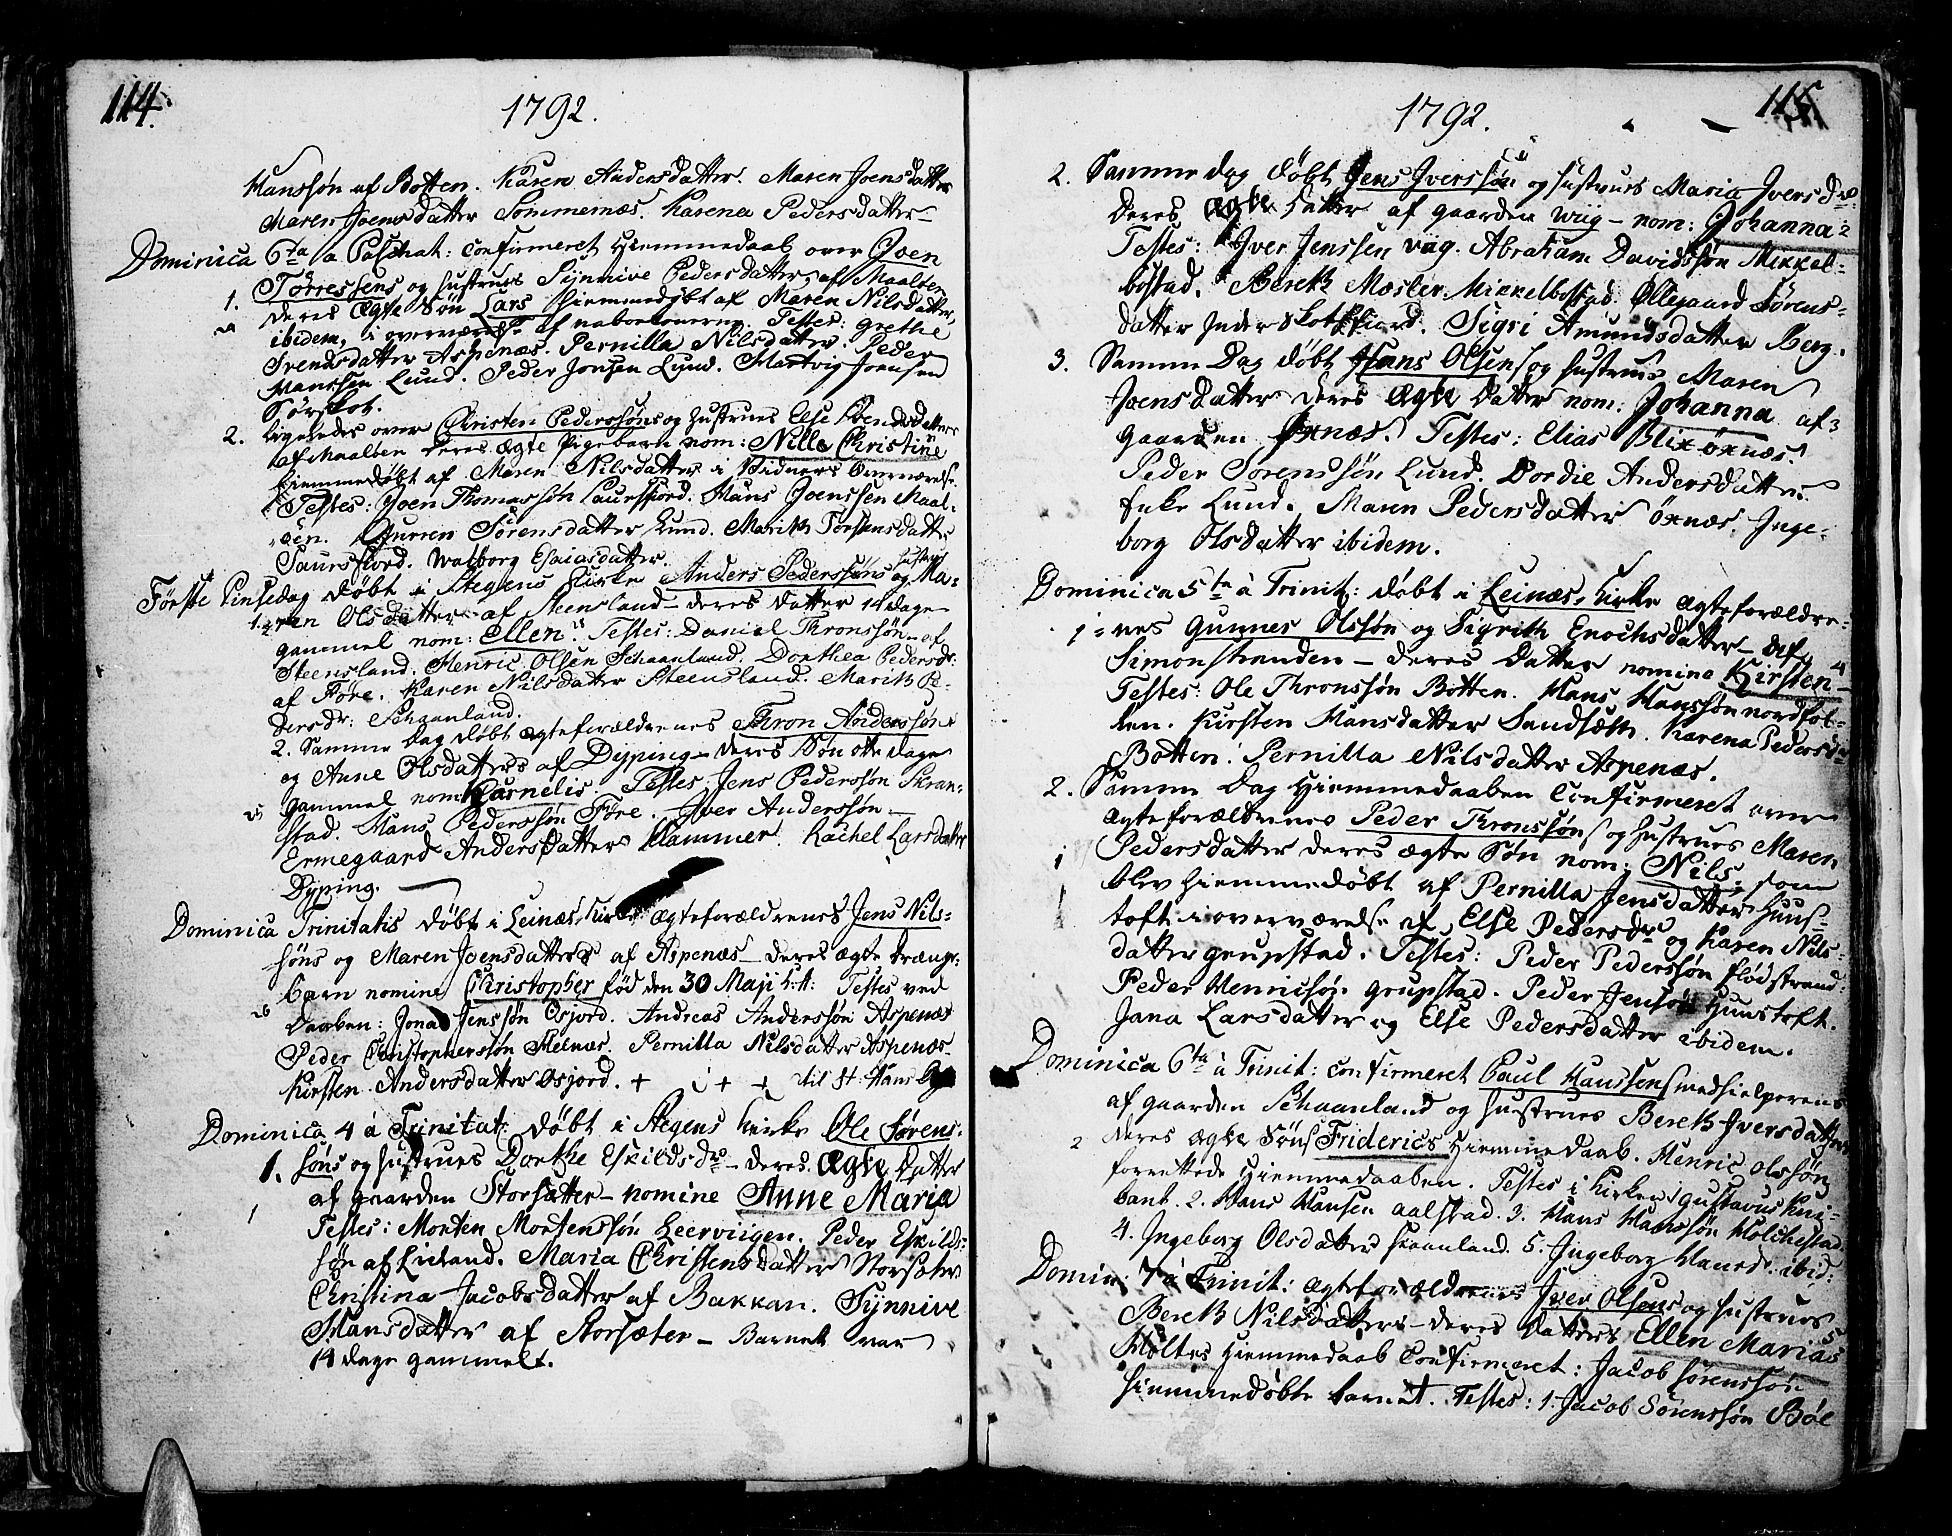 114.
1792.
Hanssøn af Botten. Karen Andersdatter. Maren Joensdatter
Maren Joensdatter Sommernæs. Karena Pedersdatter
Dominica 6ta a Paschat: confirmeret Hiemmedaab over Joen
1. Torressens og Hustrues Synnive Pedersdatter, af Maalöen
deres ægte Søn Lars Hiemmedøbt af Maren Nilsdatter,
ibidem, i overværelse af naboekonerne. Testes: Grethe
Svendsdatter Aspenæs. Pernilla Nilsdatter. Peder
Hanssen Lund. Peder Jonsen Lund. Hartvig Joensen
Sørskot.
2. Ligeledes over Christen Pederssøns og Hustrues Else Svendsdatters
af Maalöen deres ægte Pigebarn nom: Nille Christine
Hiemmedøbt af Maren Nilsdatter i Vidners Overværelse.
Testes: Joen Thomassøn Laursfiord. Hans Joenssen Maal-
öen. Gurren Sørensdatter Lund. Marith Torsensdatter
Laursfiord. Walborg Esaiasdatter.
Første Pinsedag døbt i Stegens Kirke Anders Pederssøns og Hustrues Ma-
1. ren Olsdatter af Steensland – deres Datter 14 dage
gammel nom: Ellen. Testes: Daniel Thronssøn af
Steensland. Henric Olsen Schaanland. Dorthea Pedersdr:
af Føre. Karen Nilsdatter Steensland. Marith Pe-
dersdr: Schaanland.
2. Samme Dag døbt ægteforældrenes Thron Anderssøn
og Anne Olsdatters af Dyping – deres Søn otte dage
25 gammel nom: Cornelis. Testes Jens Pederssøn Skran-
stad. Hans Pederssøn Føre. Iver Anderssøn
Ermegaard Andersdatter Hammer. Rachel Larsdatter
Dyping.
Dominica Trinitatis døbt i Leinæs Kirke ægteforældrenes Jens Nils-
søns og Maren Joensdatters af Aspenæs – deres ægte Drænge-
barn nomine Christopher fød den 30 Maji h: a: Testes ved
26 Daaben: Jona Jenssøn Osjord. Andreas Anderssøn Aspenæs
Peder Christophersson Helnæs. Pernilla Nilsdatter Aspenæs
Kirsten Andersdatter Osjord. + + + til St: Hans
Dominica 4 á Trinitat: Døbt i Stegens Kirke Ole Sørens-
1. søns og Hustrues Dorthe Eskildsdr – deres Ægte Datter
af gaarden Storsætter – nomine Anne Maria
1 Testes: Morten Mortenssøn Leerviigen. Peder Eskilds-
søn af Lieland. Maria Christensdatter Storsæter
Christina Jacobsdatter af Bakkan. Synnive
Hansdatter af Storsæter – Barnet var
14 dage gammelt.
115
1792.
2. Samme dag døbt Jens Iverssøn og Hustrues Maria Iversdr
deres ægte Datter af gaarden Wiig – nom: Johanna 2
Testes: Iver Jenssen Viig. Abraham Davidssøn Mikkel-
bostad. Bereth Mosler Mikkelbostad. Ollegaard Sørens-
datter Inder Skotsfiord. Sigri Amundsdatter Berg.
3. Samme Dag døbt Hans Olsens og Hustrues Maren
Joensdatter deres ægte Datter nom: Johanna af 3
gaarden Øxnæs. Testes: Elias Blix Øxnæs.
Peder Sørenssøn Lund. Dordie Andersdatter
Enke Lund. Maren Pedersdatter Øxnæs. Inge-
borg Olsdatter ibidem.
Dominica 5ta á Trinit: døbt i Leinæs Kirke ægteforældre-
1. nes Gunnes Olssøn og Sigrith Enochsdatter – af
Simonstranden – deres Datter nomine Kirsten 4
Testes: Ole Thronssøn Botten. Hans Hanssøn nordfol-
den. Kirsten Hansdatter Sandsæth. Karena Pedersdr
Botten. Pernilla Nilsdatter Aspenæs.
2. Samme Dag Hiemmedaaben Confirmeret over
ægteforældrenes Peder Thronssøn og Hustrues Maren
1 Pedersdatter deres ægte Søn nom: Nils, som
blev Hiemmedøbt af Pernilla Jensdatter Huns-
toft i overværelse af Else Pedersdr og Karen Nils-
datter grupstad. Testes: Peder Pederssøn flødstrand.
Peder Henricsøn grupstad. Peder Jensøn Hunstoft.
Jana Larsdatter og Else Pedersdatter ibidem.
Dominica 6ta á Trinit: confirmeret Paul Hanssens medhielperens
af gaarden Schaanland og Hustrues Bereth Iversdatters
2 deres ægte Søns Friderics Hiemmedaab. Henric Olssøn
forrettede Hiemmedaaben. Testes i Kirken: Gustavus Kni-
bant. 2. Hans Hansen aalstad. 3. Hans Hanssøn Holchestad.
4. Ingeborg Olsdatter skaanland. 5. Ingeborg Hansd. ibid:
Domin: 7 á Trinit: ægteforældrenes Iver Olsens og Hustrues
Bereth Nilsdatters – deres Datters Ellen Marias 5
Holtes Hiemmedaab Confirmeret: Jacob Sørenssøn
Hiemmedøbte barnet. Testes: 1. Jacob Sørenssøn Böe